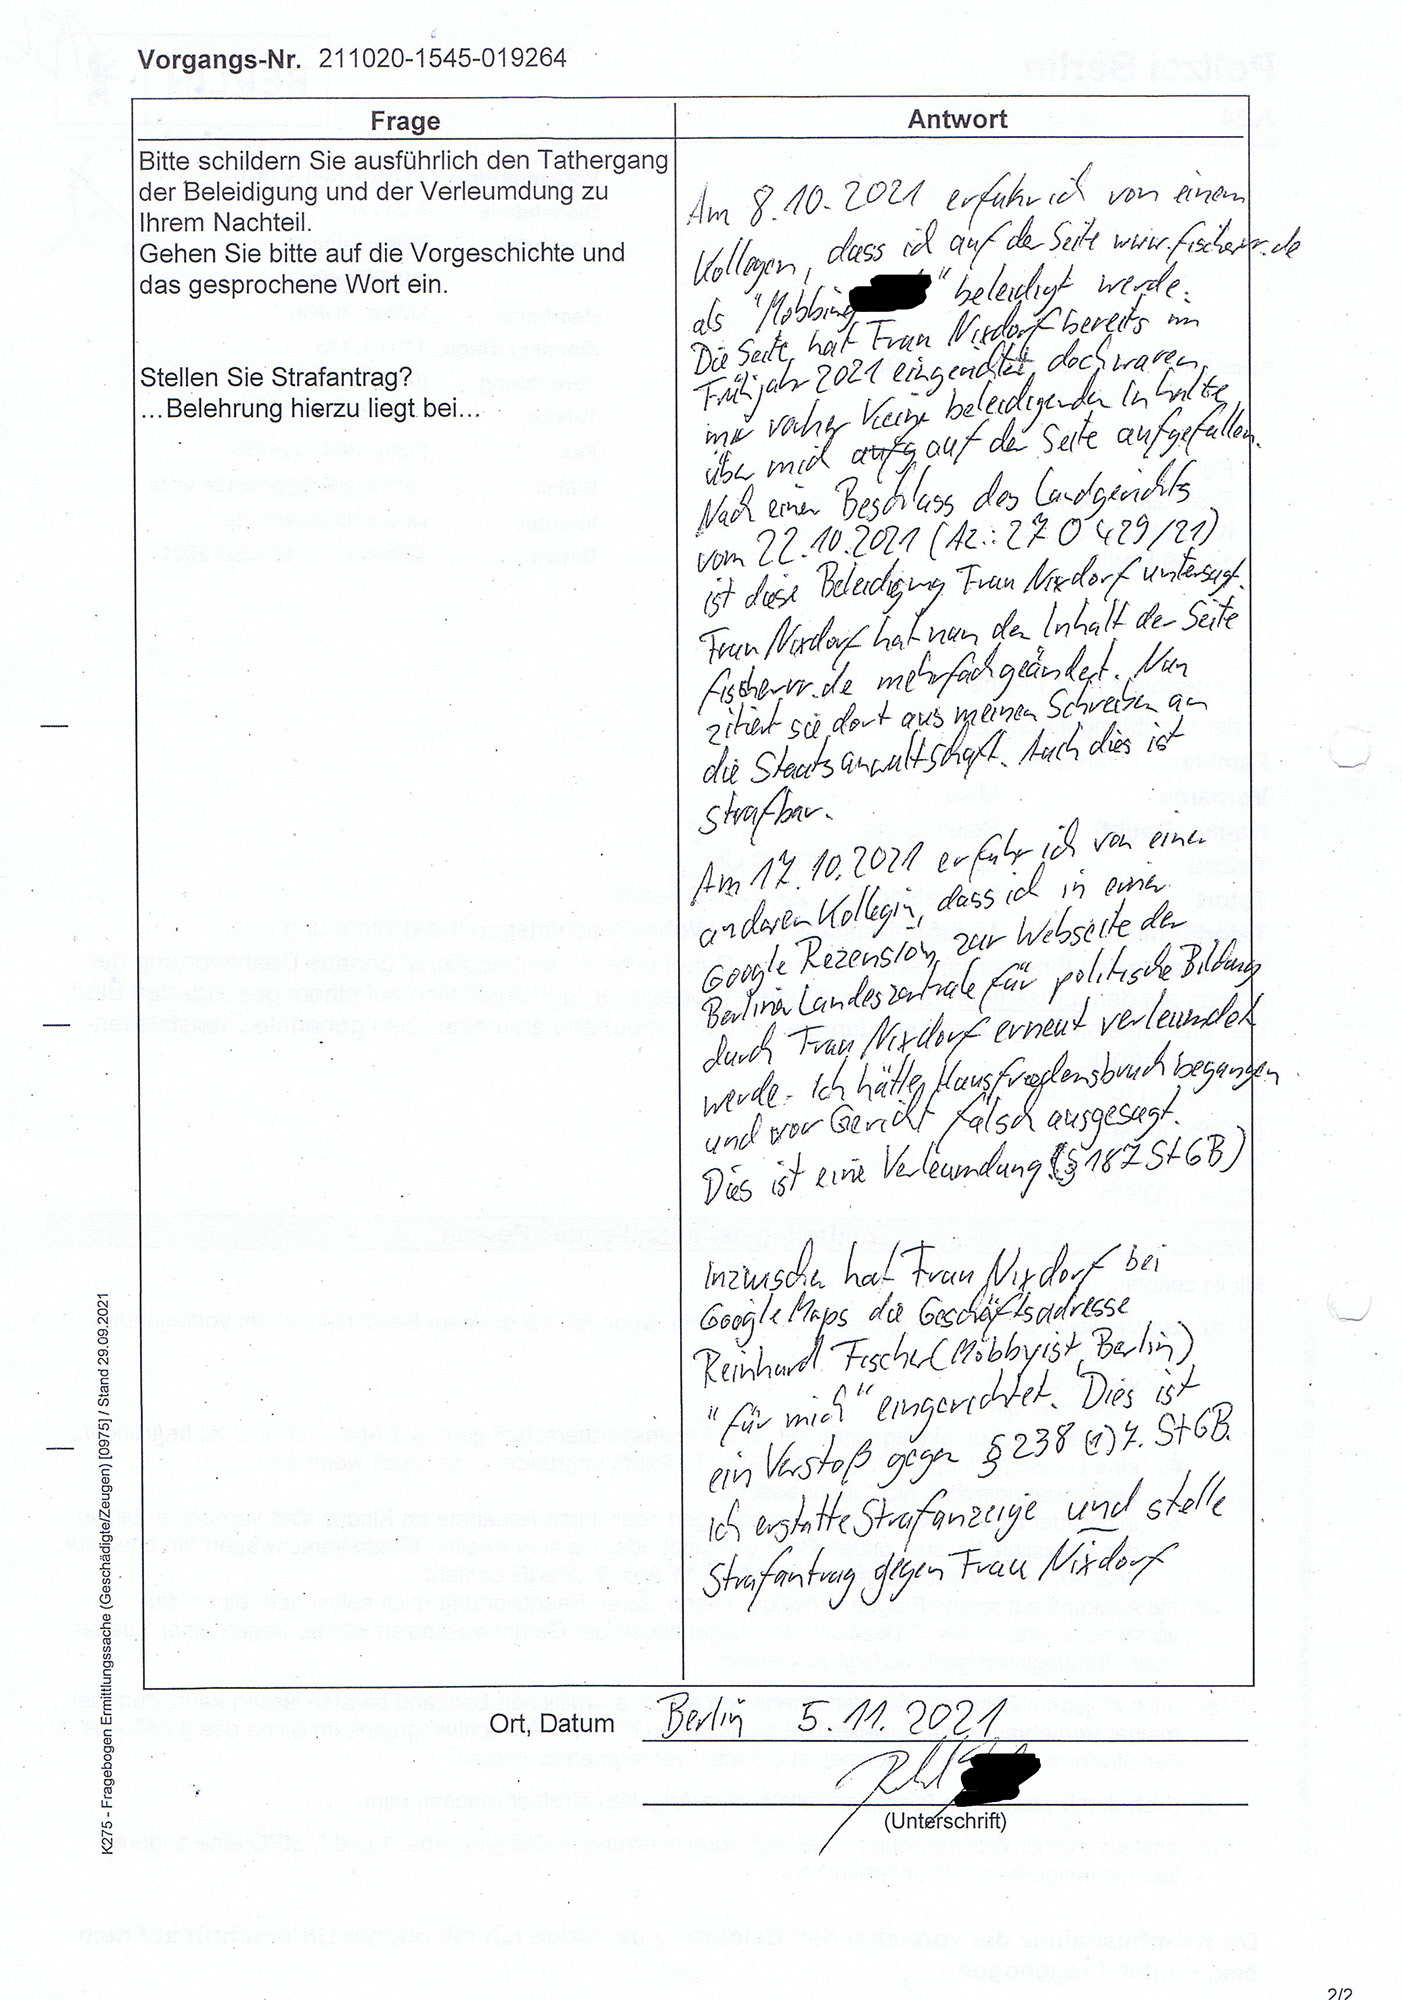 Vorgangs-Nr. 211020-1545-019264
Frage
Antwort
Bitte schildern Sie ausführlich den Tathergang
der Beleidigung und der Verleumdung zu
Ihrem Nachteil.
Gehen Sie bitte auf die Vorgeschichte und
das gesprochene Wort ein.
Stellen Sie Strafantrag?
…Belehrung hierzu liegt bei…
Am 8.10.2021 erfuhr ich von einem
Kollegen, dass ich auf der Seite www.fischerr.de
als "Mobbing " beleidigt werde.
Die Seite hat Frau Nixdorf bereits im
Frühjahr 2021 eingerichtet, doch waren
mir vorher keine beleidigenden Inhalte
über mich aufg auf der Seite aufgefallen.
Nach einem Beschluss des Landgerichts
vom 22.10.2021 (Az.: 27 O 429/21)
ist diese Beleidigung Frau Nixdorf untersagt.
Frau Nixdorf hat nun den Inhalt der Seite
fischerr.de mehrfach geändert. Nun
zitiert sie dort aus meinen Schreiben an
die Staatsanwaltschaft. Auch dies ist
strafbar.
Am 17.10.2021 erfuhr ich von einer
anderen Kollegin, dass ich in einer
Google Rezension zur Webseite der
Berliner Landeszentrale für politische Bildung
durch Frau Nixdorf erneut verleumdet
werde. Ich hätte Hausfriedensbruch begangen
und vor Gericht falsch ausgesagt.
Dies ist eine Verleumdung (§ 187 StGB)
Inzwischen hat Frau Nixdorf bei
Google Maps die Geschäftsadresse
Reinhard Fischer (Mobbyist Berlin)
"für mich" eingerichtet. Dies ist
ein Verstoß gegen § 238 (1) 7. StGB.
Ich erstatte Strafanzeige und stelle
Strafantrag gegen Frau Nixdorf
Ort, Datum Berlin 5.11.2021
(Unterschrift)
K275 - Fragebogen Ermittlungssache (Geschädigte/Zeugen) [0975] / Stand 29.09.2021
2/2